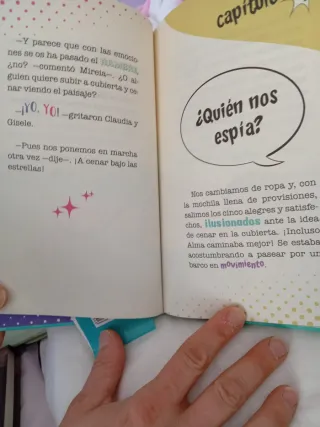 —Y parece que con las emocio-
nes se os ha pasado el
¿no? —comentó Mireia—. ¿O al-
guien quiere subir a cubierta y ce-
nar viendo el paisaje?
—¡YO, YO! —gritaron Claudia y
Gisele.
—Pues nos ponemos en marcha
otra vez —dije—. ¡A cenar bajo las
estrellas!
capítulo
¿Quién nos
espía?
Nos cambiamos de ropa y, con
la mochila llena de provisiones,
salimos los cinco alegres y satisfe-
chos, ilusionados ante la idea
de cenar en la cubierta. ¡Incluso
Alma caminaba mejor! Se estaba
acostumbrando a pasear por un
barco en movimiento.